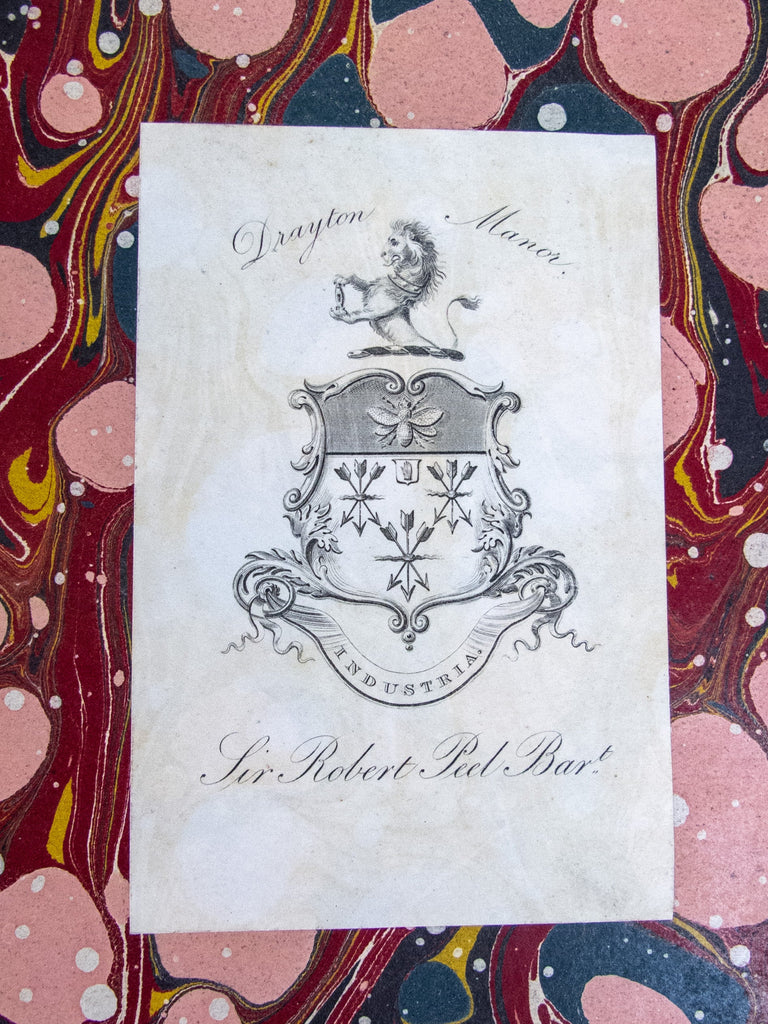 Drayton Manor.
INDUSTRIA.
Sir Robert Peel Bart.